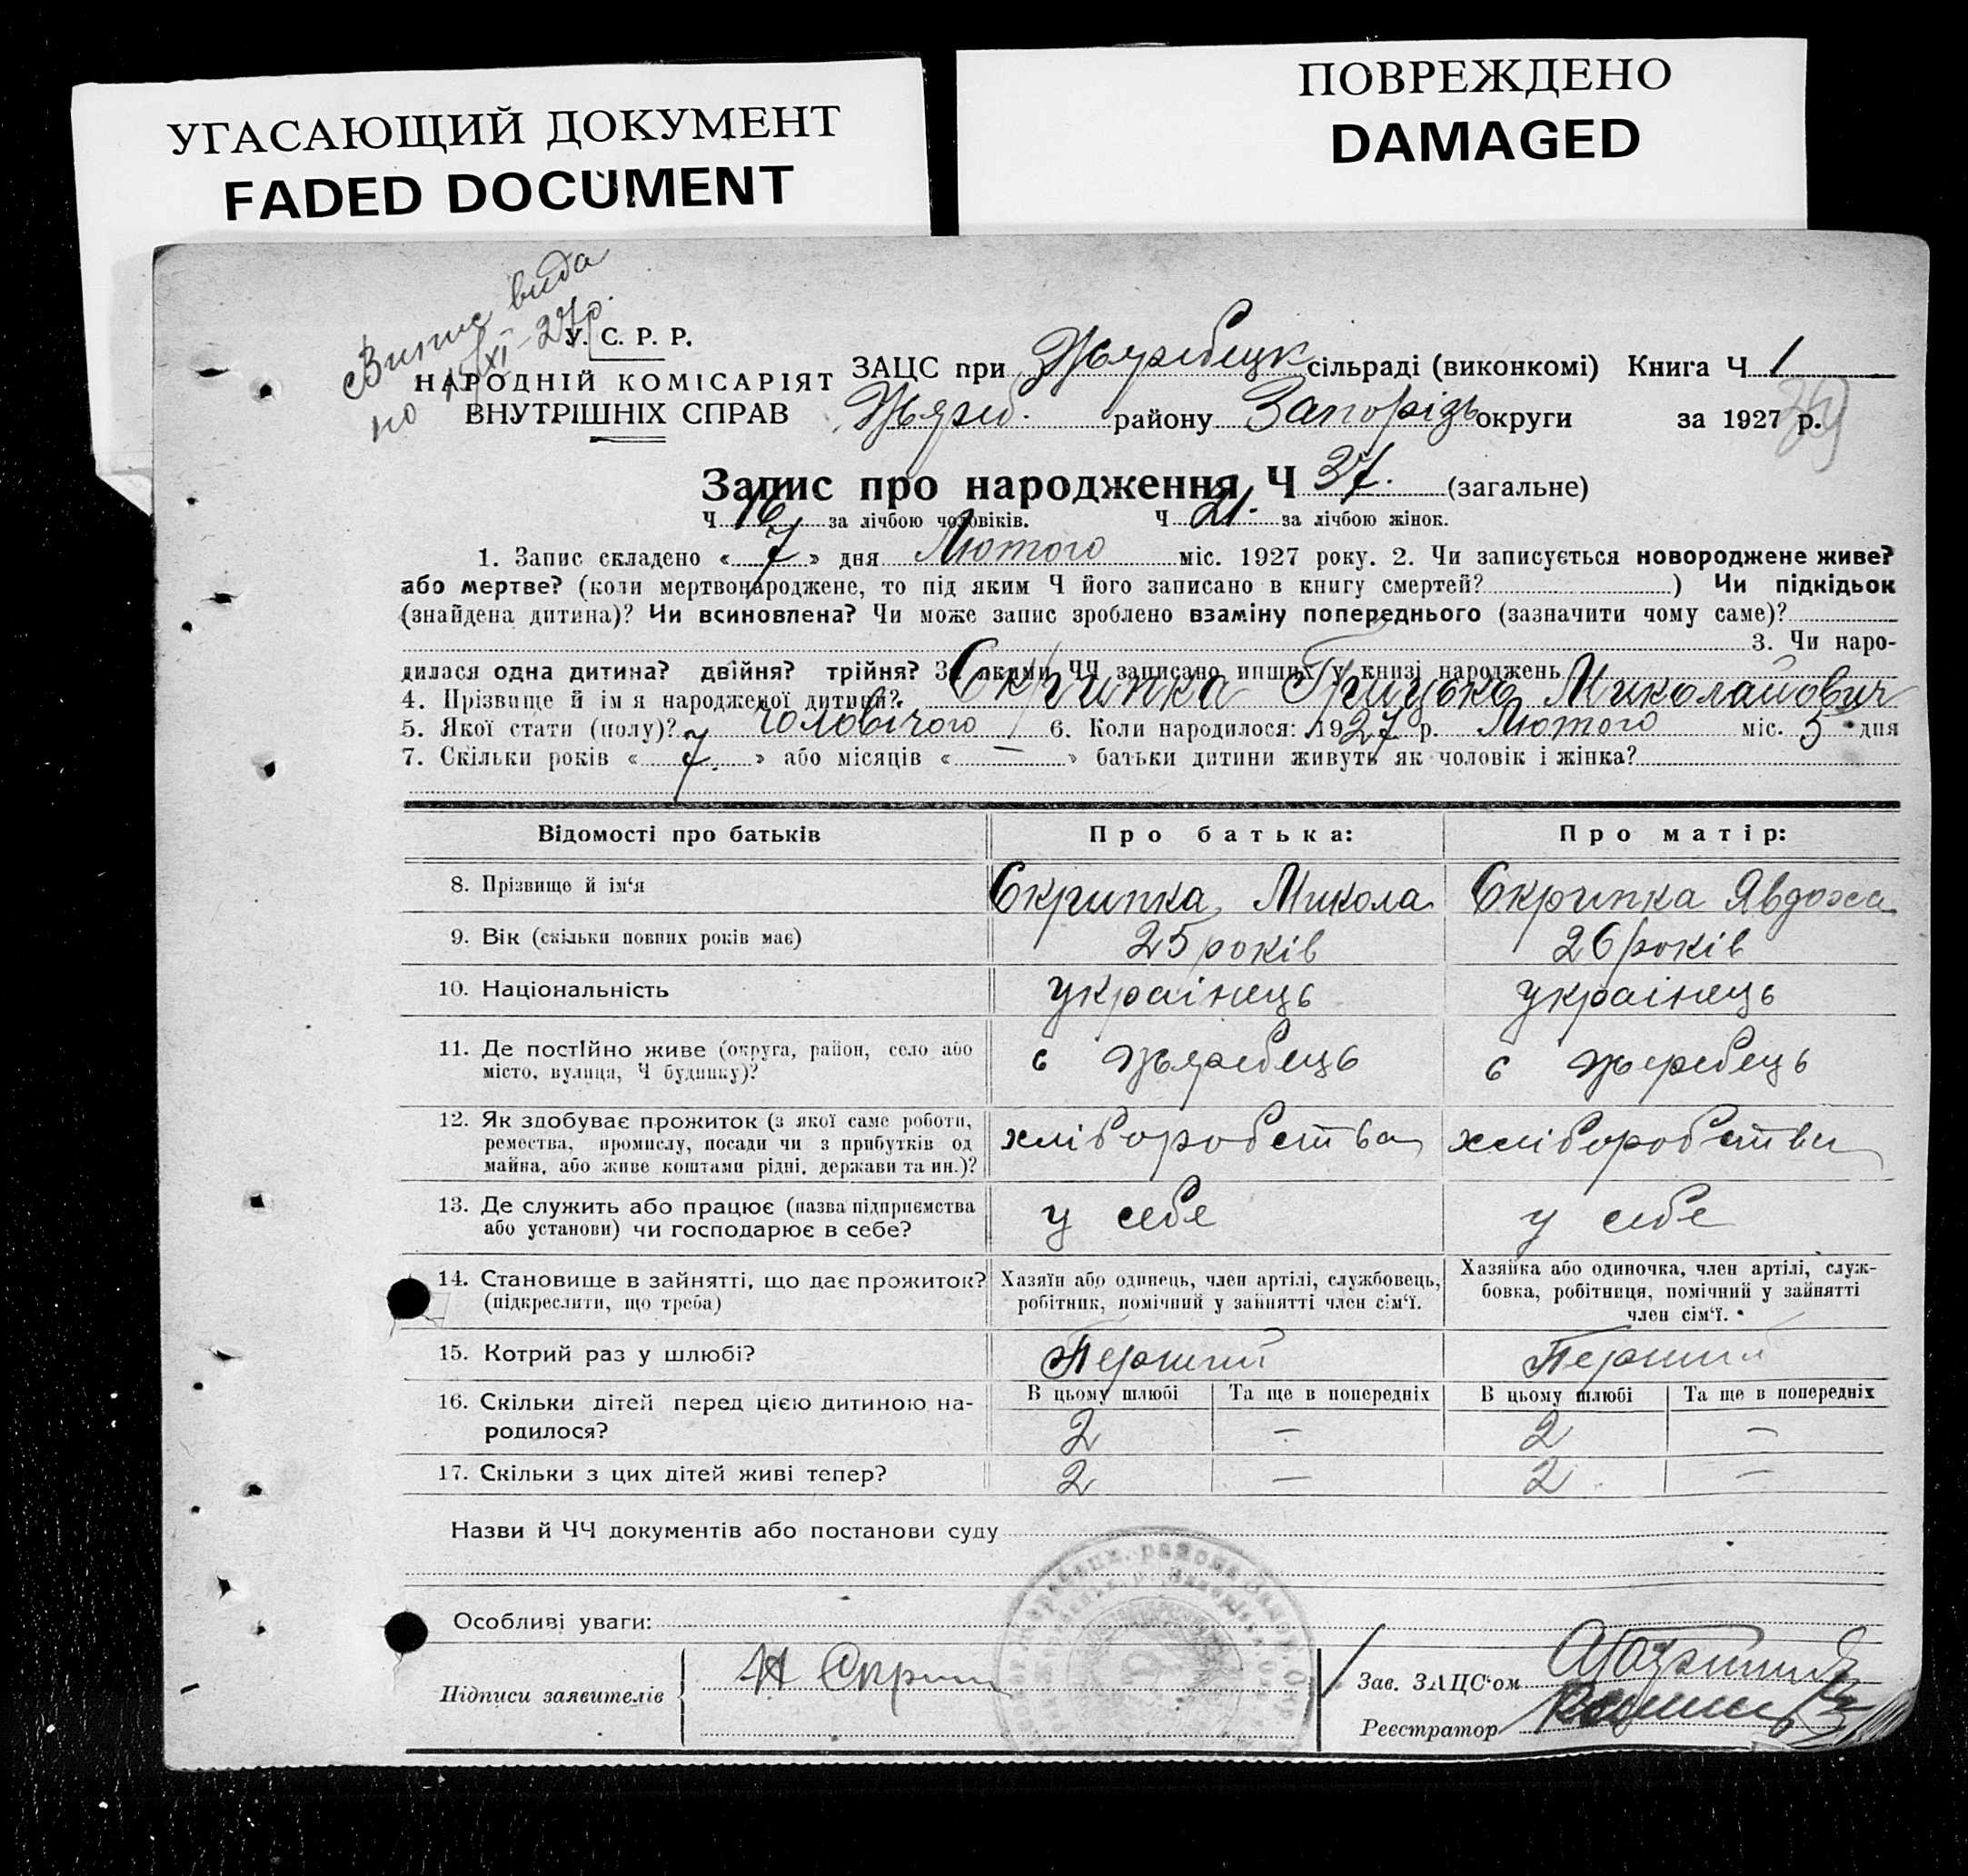 УГАСАЮЩИЙ ДОКУМЕНТ
FADED DOCUMENT
ПОВРЕЖДЕНО
DAMAGED
Випис вида
но 15/XI-27р.
У. С. Р. Р.
НАРОДНІЙ КОМІСАРІЯТ
ВНУТРІШНІХ СПРАВ
ЗАЦС при Жеребецк сільраді (виконкомі) Книга Ч 1
Жереб. району Запорізь округи за 1927 р.
Запис про народження Ч 37. (загальне)
Ч 16 за лічбою чоловіків. Ч 21. за лічбою жінок.
1. Запис складено « 7 » дня Лютого міс. 1927 року. 2. Чи записується новороджене живе?
або мертве? (коли мертвонароджене, то під яким Ч його записано в книгу смертей? ) Чи підкідьок
(знайдена дитина)? Чи всиновлена? Чи може запис зроблено взаміну попереднього (зазначити чому саме)?
3. Чи наро-
дилася одна дитина? двійня? трійня? З якими ЧЧ записано инших у книзі народжень
4. Прізвище й ім'я народженої дитини? Скрипка Грицько Миколайович
5. Якої стати (полу)? чоловічого 6. Коли народилося: 1927 р. Лютого міс. 5 дня
7. Скільки років « 7. » або місяців « — » батьки дитини живуть як чоловік і жінка?
Відомості про батьків Про батька: Про матір:
8. Прізвище й ім'я Скрипка Микола Скрипка Явдоха
9. Вік (скільки повних років має) 25 років 26 років
10. Національність українець українець
11. Де постійно живе (округа, район, село або
місто, вулиця, Ч будинку)? с Жеребець с Жеребець
12. Як здобуває прожиток (з якої саме роботи,
ремества, промислу, посади чи з прибутків од
майна, або живе коштами рідні, держави та ин.)? хліборобства хліборобства
13. Де служить або працює (назва підприємства
або установи) чи господарює в себе? у себе у себе
14. Становище в зайнятті, що дає прожиток?
(підкреслити, що треба)
Хазяїн або одинець, член артілі, службовець,
робітник, помічний у зайнятті член сім'ї.
Хазяйка або одиночка, член артілі, служ-
бовка, робітниця, помічний у зайнятті
член сім'ї.
15. Котрий раз у шлюбі? Перший Перший
В цьому шлюбі Та ще в попередніх В цьому шлюбі Та ще в попередніх
16. Скільки дітей перед цією дитиною на-
родилося? 2 — 2 —
17. Скільки з цих дітей живі тепер? 2 — 2 —
Назви й ЧЧ документів або постанови суду
Особливі уваги:
Підписи заявителів Н Скрип
Зав. ЗАЦС'ом
Реєстратор